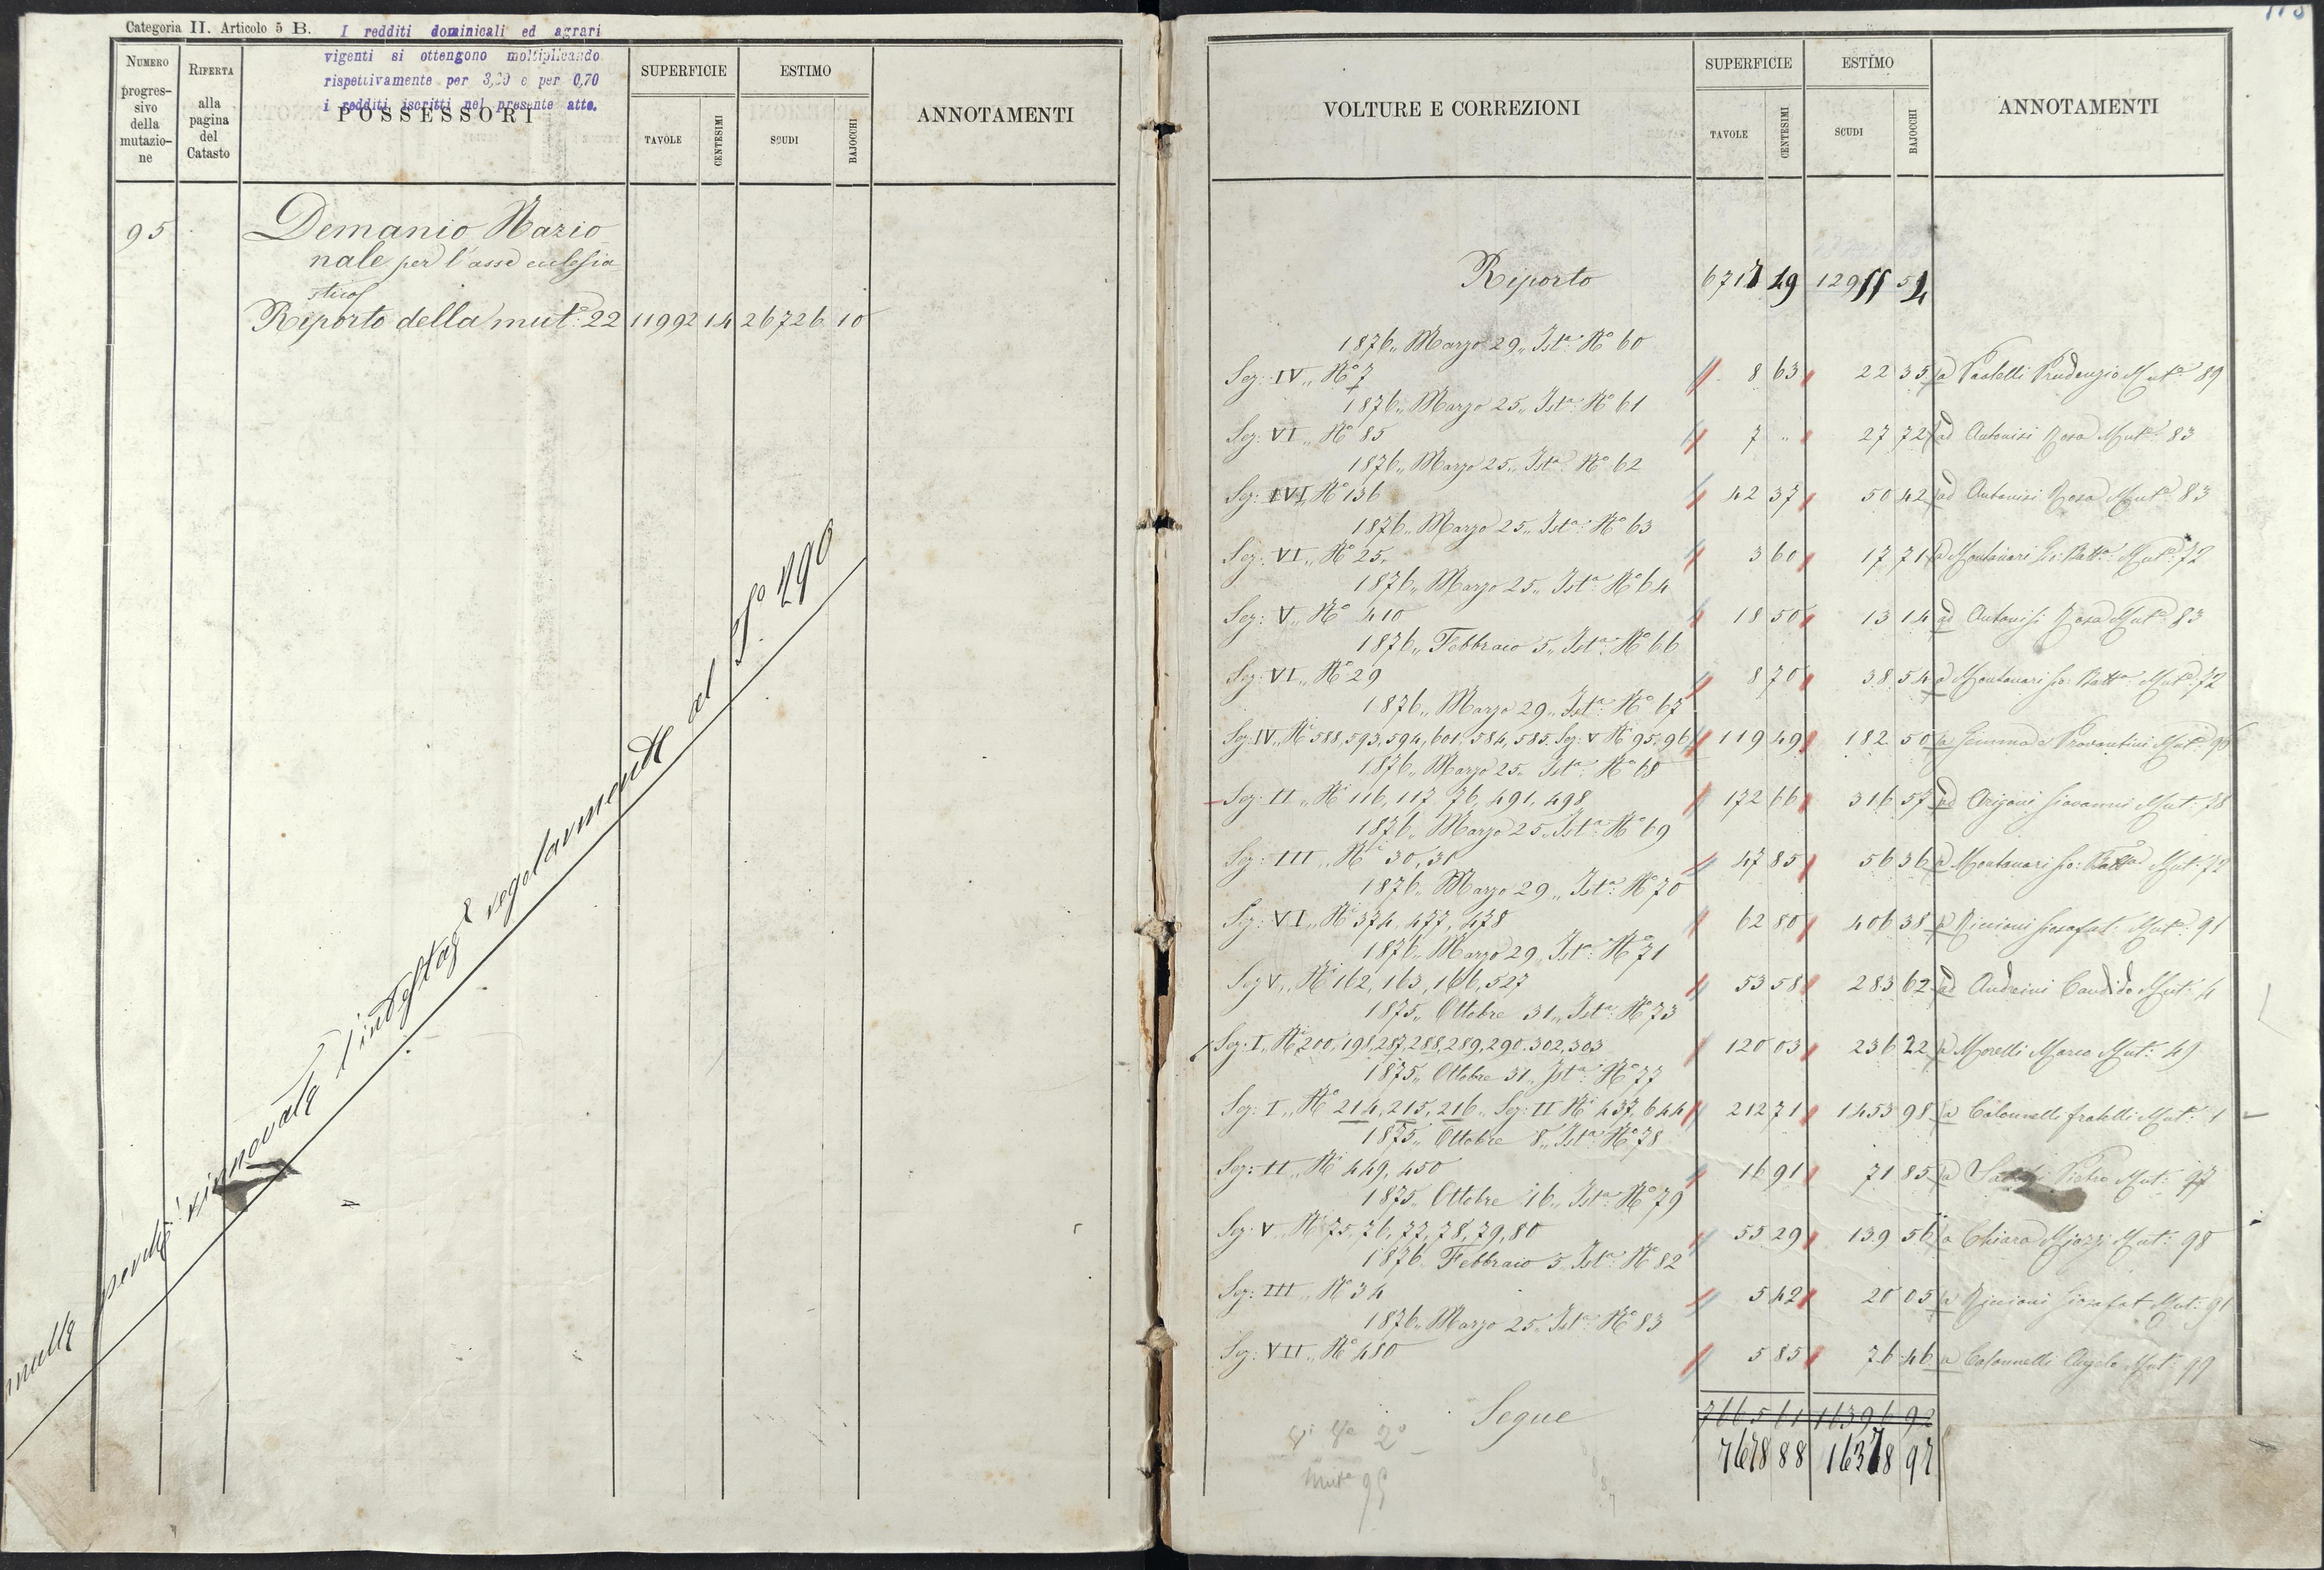 Categoria II. Articolo 5 B.
I redditi dominicali ed agrari
vigenti si ottengono moltiplicando
rispettivamente per 3,20 e per 0,70
i redditi iscritti nel presente atto.
NUMERO progres- sivo della mutazio- ne
RIFERTA alla pagina del Catasto
POSSESSORI
SUPERFICIE
TAVOLE CENTESIMI
ESTIMO
SCUDI BAJOCCHI
ANNOTAMENTI
95 Demanio Nazio
nale per l'asse ecclesia
stico
Riporto della mut.ª 22 11992 14 26726 10
perchè rinnovata l'intestaz.e regolarmente al f.º 290
VOLTURE E CORREZIONI
SUPERFICIE
TAVOLE CENTESIMI
ESTIMO
SCUDI BAJOCCHI
ANNOTAMENTI
Riporto 6717 49
1876,, Marzo 29,, Ist.ª Nº 60
Sez: IV,, Nº 7 8 63 22 35 a Pastelli Prudenzio Mut.ª 89
1876,, Marzo 25,, Ist.ª Nº 61
Sez: VI,, Nº 85 7 ,, 27 72 ad Antonisi Rosa Mut.ª 83
1876,, Marzo 25,, Ist.ª Nº 62
Sez: Nº 136 42 37 50 42 ad Antonisi Rosa Mut.ª 83
1876,, Marzo 25,, Ist.ª Nº 63
Sez: VI,, Nº 25 3 60 17 71 a Montanari Gio: Batt.ª Mut.ª 72
1876,, Marzo 25,, Ist.ª Nº 64
Sez: V,, Nº 410 18 50 13 14 ad Antonisi Rosa Mut.ª 83
1876,, Febbraio 5,, Ist.ª Nº 66
Sez: VI,, Nº 29 8 70 38 54 a Montanari Gio: Batt.ª Mut.ª 72
1876,, Marzo 29,, Ist.ª Nº 67
Sez: IV,, Ni 588, 593, 594, 601, 584, 585. Sez: V Ni 95, 96 119 49 182 50 a Gemma e Provantini Mut.ª 96
1876,, Marzo 25,, Ist.ª Nº 68
Sez: II,, Ni 116, 117, 76, 491, 498 172 66 316 57 ad Arigoni Giovanni Mut.ª 78
1876,, Marzo 25,, Ist.ª Nº 69
Sez: III,, Ni 30, 31 47 85 56 36 a Montanari Gio: Batt.ª Mut: 72
1876,, Marzo 29,, Ist.ª Nº 70
Sez: VI,, Ni 374, 477, 478 62 80 406 38 a Riccioni Giosafat. Mut.ª 91
1876,, Marzo 29,, Ist.ª Nº 71
Sez V,, Ni 162, 163, 166, 527 53 58 283 62 ad Andreini Candido Mut: 4
1875,, Ottobre 31,, Ist.ª Nº 73
Sez: I,, Ni 200, 198, 287, 288, 289, 290, 302, 303 120 03 236 22 a Morelli Marco Mut: 49
1875,, Ottobre 31,, Ist.ª Nº 77
Sez: I,, Ni 214, 215, 216,, Sez: II Ni 437, 644 212 71 1453 98 a Colonnelli fratelli Mut: 1
1875,, Ottobre 8,, Ist.ª Nº 78
Sez: II,, Ni 449, 450 16 91 71 85 a Pietro Mut: 97
1875 Ottobre 16,, Ist.ª Nº 79
Sez: V,, Ni 75, 76, 77, 78, 79, 80 55 29 139 56 a Chiara Miozzi Mut: 98
1876 Febbraio 5 Ist.ª Nº 82
Sez: III,, Nº 34 5 42 20 05 a Riccioni Giosafat Mut: 91
1876,, Marzo 25,, Ist.ª Nº 83
Sez: VII,, Nº 480 5 85 76 46 a Colonnelli Angelo Mut: 99
Segue
7678 88 16378 97
Mut.ª 95